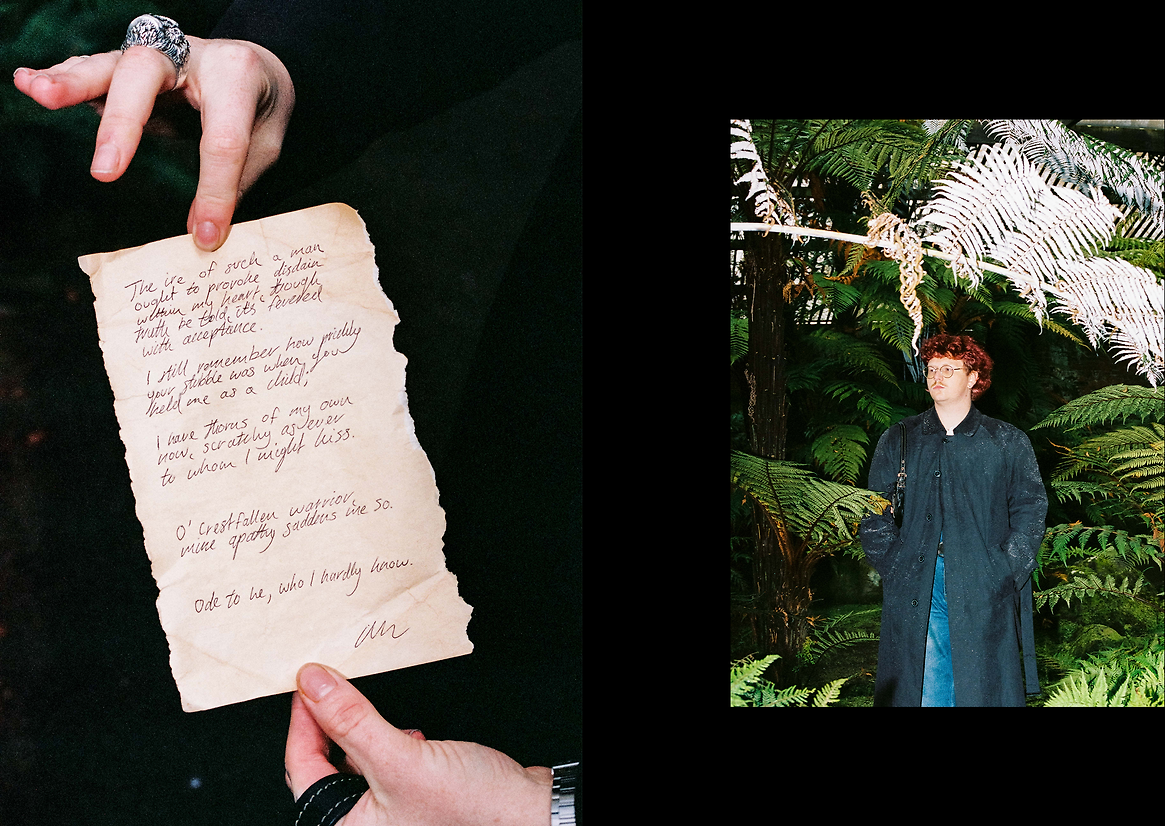 The ire of such a man
ought to provoke disdain
within my heart, though
truth be told, it's fevered
with acceptance.
I still remember how prickly
your stubble was when you
held me as a child,
I have thorns of my own
now, scratchy as ever
to whom I might kiss.
O' Crestfallen warrior,
mine apathy saddens me so.
Ode to he, who I hardly know.